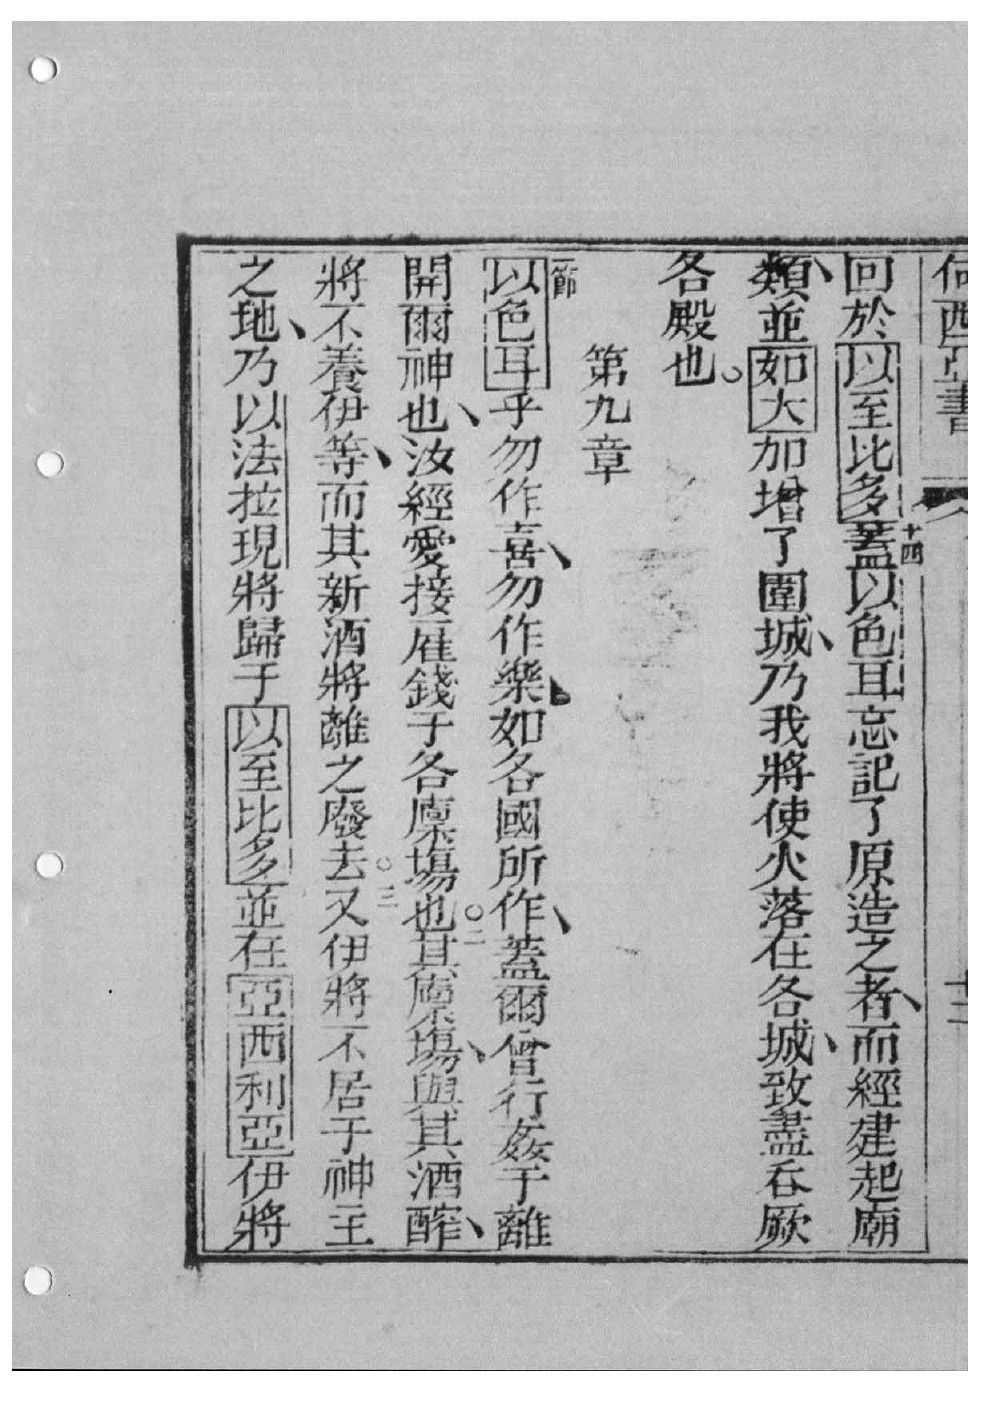 何西亞書 十二
回於以至比多十四蓋以色耳忘記了原造之者、而經建起廟
類、並如大加增了圍城、乃我將使火落在各城、致盡吞厥
各殿也。
第九章
一節以色耳乎勿作喜、勿作樂、如各國所作、蓋爾曾行姦于離
開爾神也、汝經愛接雇錢于各廩塲也。二其廩塲、與其酒醡、
將不養伊等、而其新酒將離之廢去。三又伊將不居于神主
之地、乃以法拉現將歸于以至比多並在亞西利亞伊將